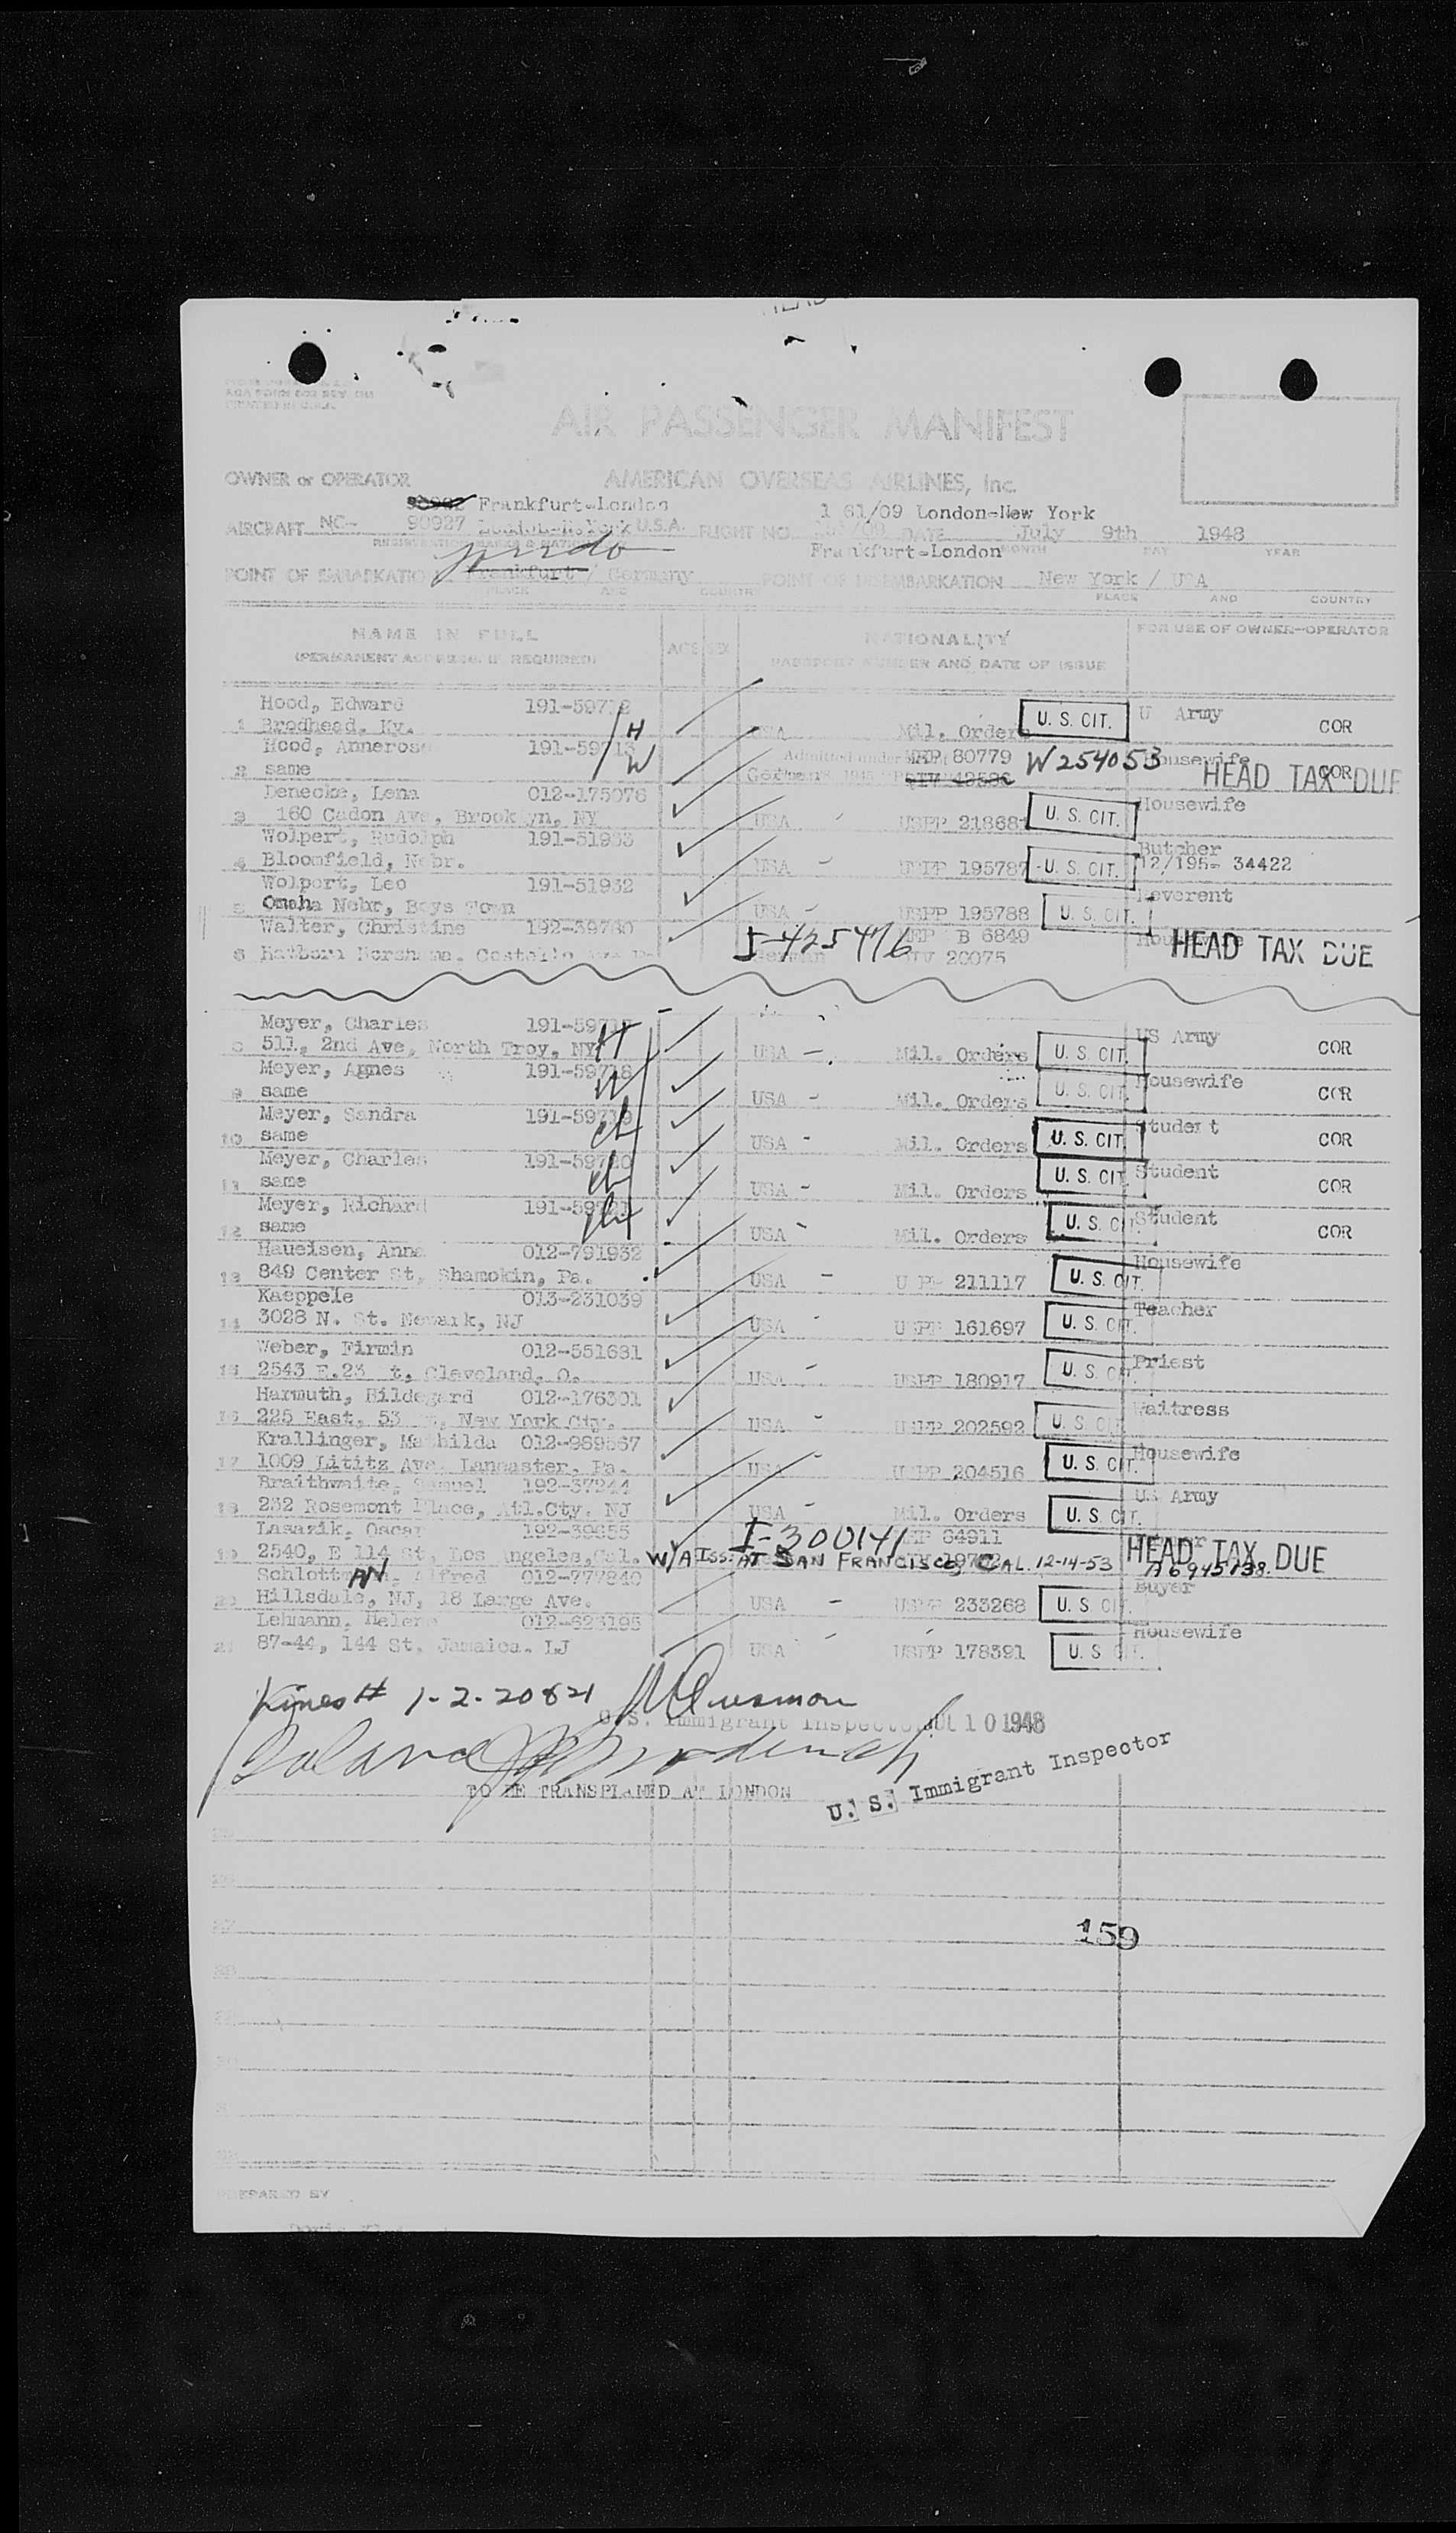 AIR PASSENGER MANIFEST
OWNER or OPERATOR AMERICAN OVERSEAS AIRLINES, Inc.
90902 Frankfurt-London 1 61/09 London-New York
AIRCRAFT NC- 90927 London-N.York U.S.A. FLIGHT NO. DATE July 9th 1948
Frankfurt-London MONTH DAY YEAR
POINT OF EMBARKATION Frankfurt / Germany POINT OF DISEMBARKATION New York / USA
PLACE AND COUNTRY PLACE AND COUNTRY
NAME IN FULL AGE SEX NATIONALITY FOR USE OF OWNER-OPERATOR
(PERMANENT ADDRESS, IF REQUIRED) PASSPORT NUMBER AND DATE OF ISSUE
Hood, Edward 191-59712 U Army
1 Brodhead, Ky. H USA Mil. Orders U. S. CIT. COR
Hood, Annerose 191-59713 W Admitted under 80779 W254053 Housewife
2 same German COR HEAD TAX DUE
Denecke, Lena 012-175076 Housewife
3 160 Cadon Ave, Brooklyn, NY USA USPP 21868 U. S. CIT.
Wolpert, Rudolph 191-51933 Butcher
4 Bloomfield, Nebr. USA USPP 195787 U. S. CIT. 12/195- 34422
Wolpert, Leo 191-51932 Reverent
5 Omaha Nebr, Boys Town USA USPP 195788 U. S. CIT.
Walter, Christine 192-39760 I-425476 B 6849 Housewife
6 German 20075 HEAD TAX DUE
Meyer, Charles 191-59717 H US Army
511, 2nd Ave, North Troy, NY USA Mil. Orders U. S. CIT. COR
Meyer, Agnes 191-59718 W Housewife
9 same USA Mil. Orders U. S. CIT. COR
Meyer, Sandra 191-59719 ch Student
10 same USA Mil. Orders U. S. CIT. COR
Meyer, Charles 191-59720 ch Student
11 same USA Mil. Orders U. S. CIT. COR
Meyer, Richard 191-59721 ch Student
12 same USA Mil. Orders U. S. CIT. COR
Haueisen, Anna 012-791932 Housewife
13 849 Center St, Shamokin, Pa. USA 211117 U. S. CIT.
Kaeppele 013-231039 Teacher
14 3028 N. St. Newark, NJ USA USPP 161697 U. S. CIT.
Weber, Firmin 012-551681 Priest
15 2543 E.23 t, Cleveland, O. USA USPP 180917 U. S. CIT.
Harmuth, Hildegard 012-176301 Waitress
16 225 East, 53 New York City. USA USPP 202592 U. S. CIT.
Krallinger, Mathilda 012-989567 Housewife
17 1009 Lititz Ave Lancaster, Pa. USA USPP 204516 U. S. CIT.
Braithwaite, Samuel 192-37244 US Army
18 232 Rosemont Place, Atl.Cty. NJ USA Mil. Orders U. S. CIT.
Lasarik, Oscar 192-39855 I-300141 84911
19 2540, E 114 St, Los Angeles, Cal. W/A ISS. AT SAN FRANCISCO, CAL. 12-14-53 HEAD TAX DUE A6945138
Alfred 012-777840 Buyer
20 Hillsdale, NJ, 18 Large Ave. USA USPP 233268 U. S. CIT.
Lehmann, Helene 012-623195 Housewife
21 87-44, 144 St, Jamaica. LJ USA USPP 178391 U. S. CIT.
1-2-20821
U. S. Immigrant Inspector JUL 10 1948
TO BE TRANSPLANED AT LONDON
U. S. Immigrant Inspector
159
PREPARED BY